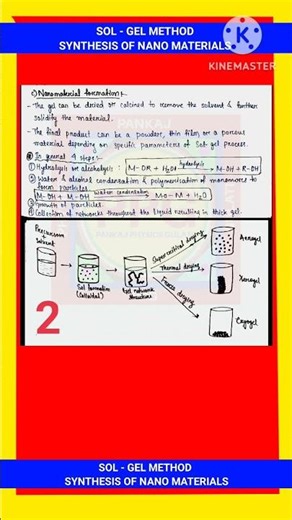 SOL - GEL METHOD
SYNTHESIS OF NANO MATERIALS
KINEMASTER
c) Nanomaterial formation:-
- The gel can be dried or calcined to remove the solvent & further
solidify the material.
- The final product can be a powders, thin film or a porous
material depending on specific parameters of Sol-gel process.
In general 4 steps:-
① Hydralysis or alcoholysis : M-OR + H₂O hydrolysis M-OH + R-OH
② Water & alcohol condensation & polymerisation of monomers to
form particles.
M-OH + M-OH water condensation Mo-M + H₂O
③ Growth of particles.
④ of networks throughout the liquid resulting in thick gel.
Precursor
+
Solvent
Sol formation
(Colloidal)
Gel network
structure
Supercritical drying
Thermal drying
Freeze drying
Aerogel
Xerogel
Cryogel
2
SOL - GEL METHOD
SYNTHESIS OF NANO MATERIALS